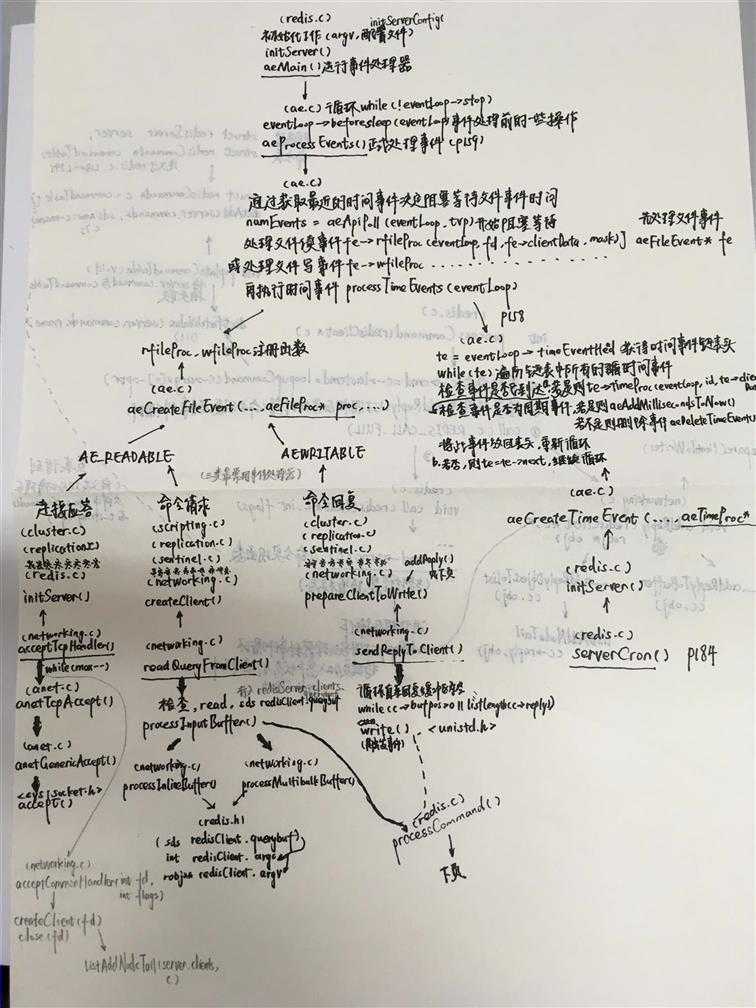 (redis.c) initServerConfig(
初始化工作(argv,配置文件)
initServer()
aeMain()运行事件处理器
(ae.c) 循环while(!eventLoop->stop)
eventLoop->beforesleep(eventLoop)事件处理前时一些操作
aeProcessEvents()正式处理事件(p159)
(ae.c)
通过获取最近的时间事件决定阻塞等待文件事件时间
numEvents = aeApiPoll(eventLoop,tvp)开始阻塞等待
先处理文件事件
处理文件读事件fe->rfileProc(eventLoop,fd,fe->clientData,mask)] aeFileEvent* fe
或处理文件写事件fe->wfileProc ..........
再执行时间事件 processTimeEvents(eventLoop)
p158
rfileProc,wfileProc注册函数
(ae.c)
aeCreateFileEvent(...,aeFileProc* proc,...)
(ae.c)
te = eventLoop->timeEventHead 获得时间事件链表头
while(te) 遍历链表中所有的时间事件
检查事件是否到达,若是则te->timeProc(eventLoop,id,te->clien
a.检查事件是否为周期事件,若是则aeAddMillisecondsToNow()
若不是则删除事件aeDeleteTimeEvent()
将te事件放回表头,重新循环
b.若否,则te=te->next,继续循环
AE_READABLE
AE_WRITABLE
(三类常用事件处理器)
(ae.c)
aeCreateTimeEvent(...,aeTimeProc*
(redis.c)
initServer()
(redis.c)
serverCron() p184
连接应答
(cluster.c)
(replication.c)
(redis.c)
initServer()
(networking.c)
acceptTcpHandler()
while(max--)
(anet.c)
anetTcpAccept()
(anet.c)
anetGenericAccept()
<sys/socket.h>
accept()
(networking.c)
acceptCommonHandler(int fd,
int flags)
createClient(fd)
close(fd)
listAddNodeTail(server.clients,
c)
命令请求
(scripting.c)
(replication.c)
(sentinel.c)
(networking.c)
createClient()
(networking.c)
readQueryFromClient()
redisServer.clients
检查,read,sds redisClient.querybuf
processInputBuffer()
(networking.c)
processInlineBuffer()
(networking.c)
processMultibulkBuffer()
(redis.h)
(sds redisClient.querybuf)
int redisClient.argc
robj** redisClient.argv
命令回复
(cluster.c)
(replication.c)
(sentinel.c)
(networking.c)
prepareClientToWrite()
addReply()
见下页
(networking.c)
sendReplyToClient()
while(c->bufpos>0 || listLength(c->reply))
write() <unistd.h>
(redis.c)
processCommand()
下页